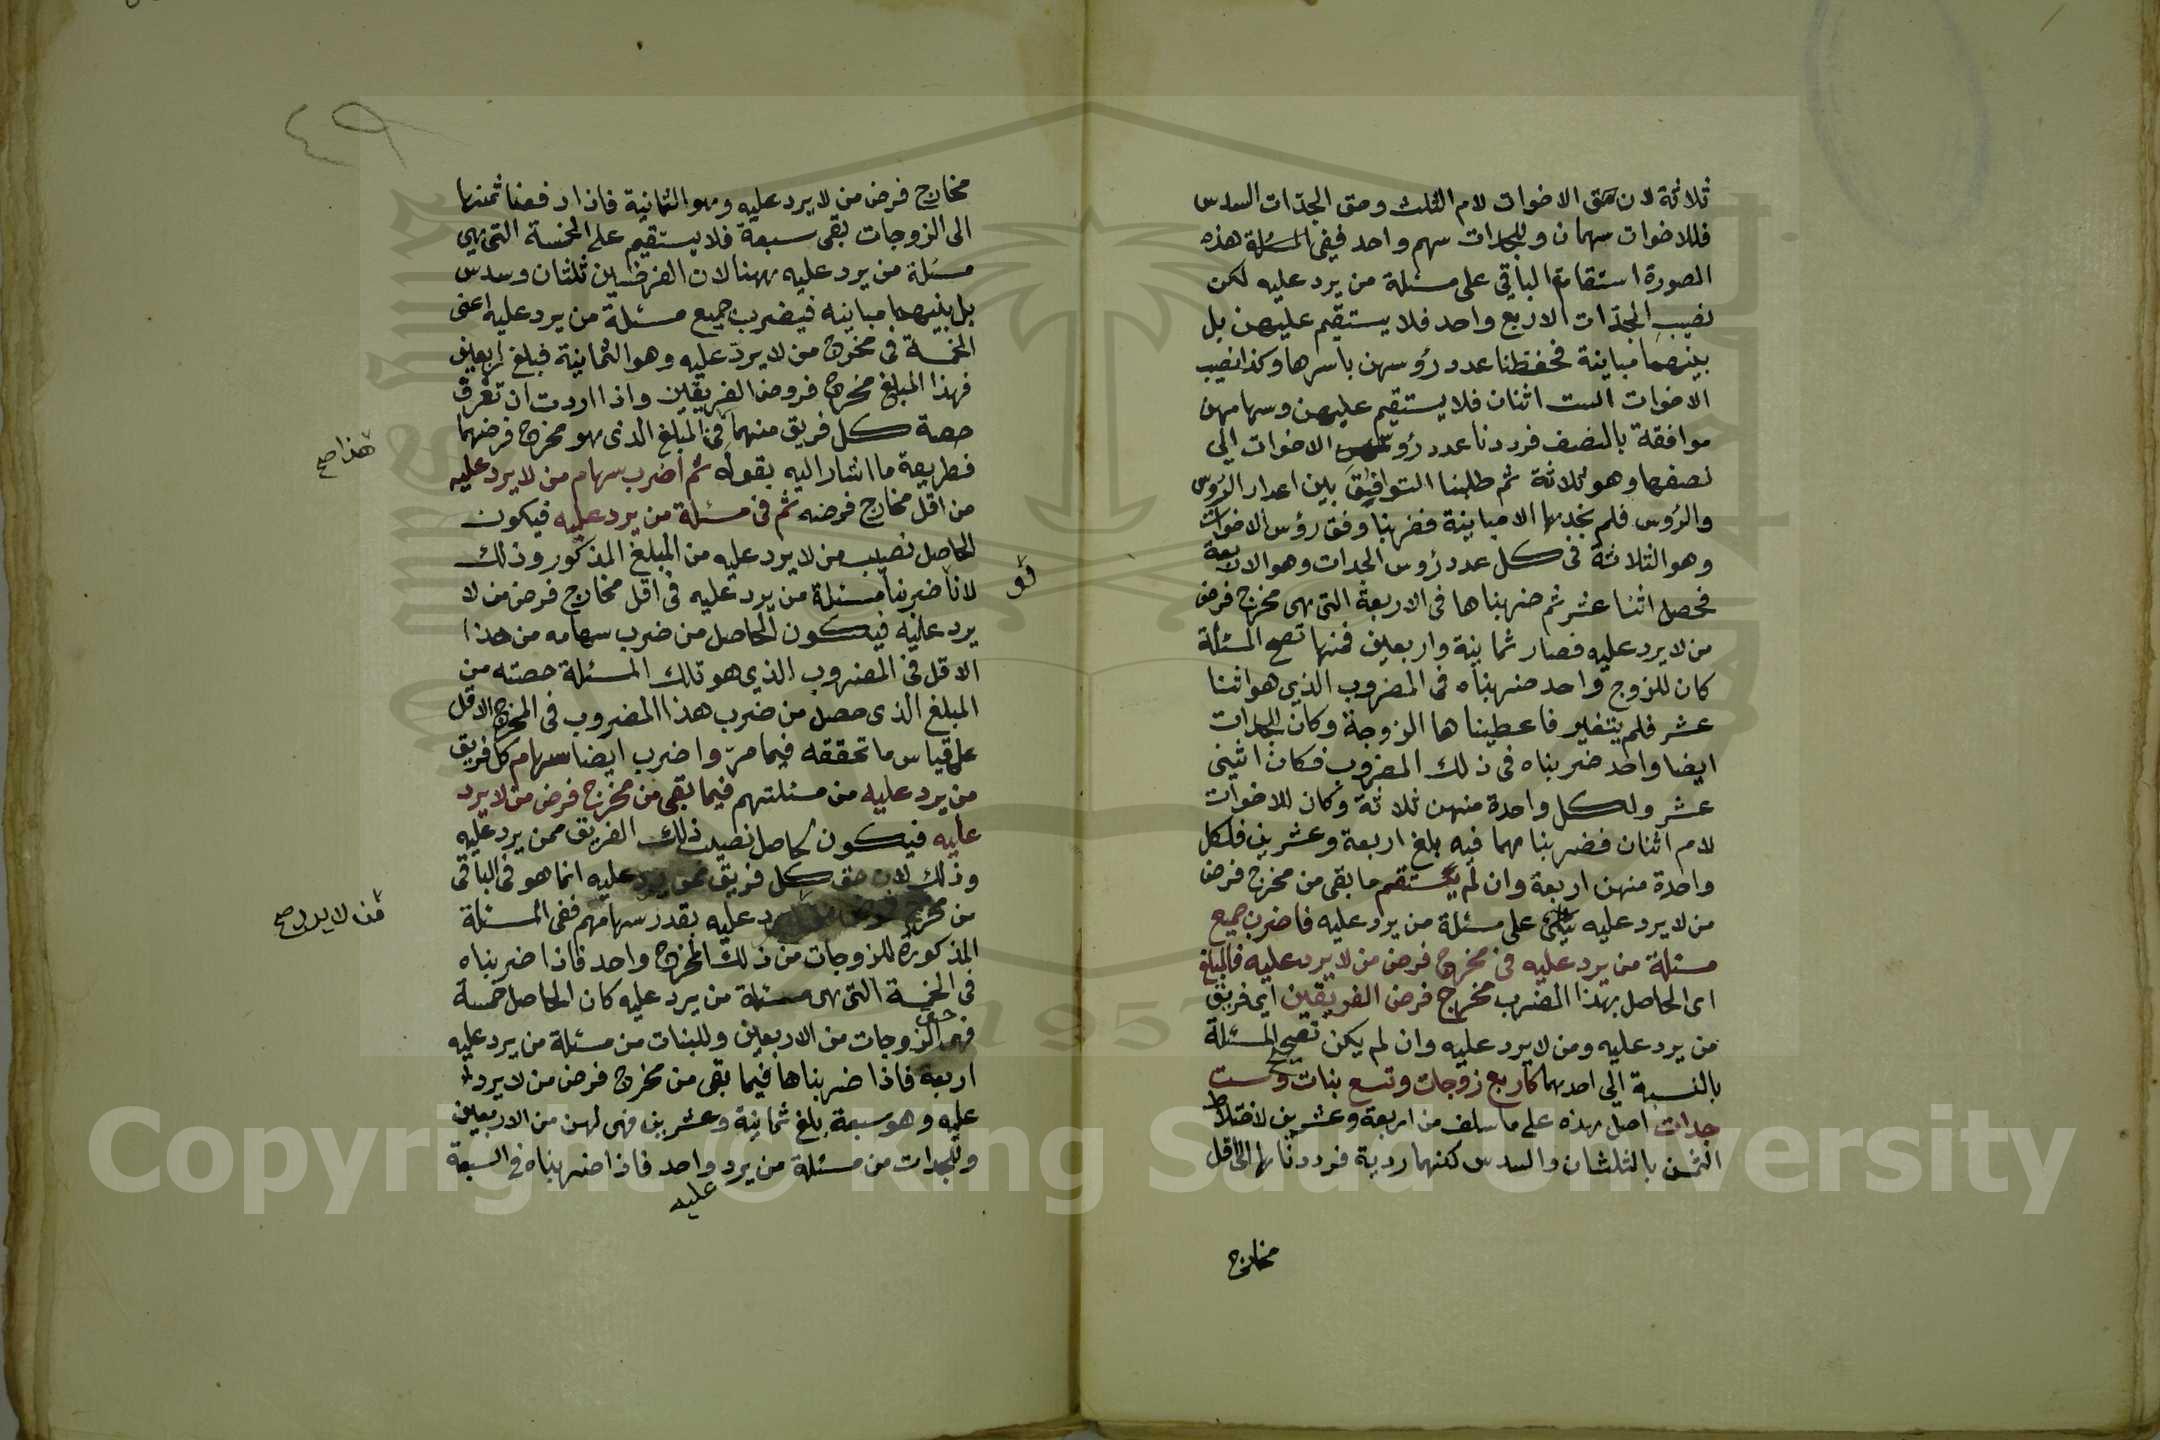 ثلاثة لان حق الاخوات لام الثلث وحق الجدّات السدس
فللاخوات سهمان وللجدات سهم واحد ففى المسئلة هذه
الصورة استقامة الباقي على مسئلة من يرد عليه لكن
نصيب الجدّات الاربع واحد فلا يستقيم عليهن بل
بينهما مباينة فحفظنا عدد رؤسهن باسرها وكذا نصيب
الاخوات الست اثنان فلا يستقيم عليهن وسهامهن
موافقة بالنصف فرددنا عدد رؤس الاخوات الي
نصفها وهو ثلاثة ثم طلبنا التوافق بين اعداد الرؤس
والرؤس فلم نجدها الا مباينة فضربنا وفق رؤس الاخوات
وهو الثلاثة فى كل عدد رؤس الجدات وهو الاربعة
فحصل اثنا عشر ثم ضربناها فى الاربعة التى هى مخرج فرض
من لا يرد عليه فصار ثمانية واربعين فمنها تصح المسئلة
كان للزوج واحد ضربناه فى المضروب الذي هو اثنا
عشر فلم يتغير فاعطيناها الزوجة وكان للجدات
ايضا واحد ضربناه فى ذلك المضروب فكان اثنى
عشر ولكل واحدة منهن ثلاثة وكان للاخوات
لام اثنان فضربناهما فيه بلغ اربعة وعشرين فلكل
واحدة منهن اربعة وان لم يستقم ما بقى من مخرج فرض
من لا يرد عليه على مسئلة من يرد عليه فاضرب جميع
مسئلة من يرد عليه فى مخرج فرض من لا يرد عليه فالمبلغ
اى الحاصل بهذا الضرب مخرج فرض الفريقين اى فريق
من يرد عليه ومن لا يرد عليه وان لم يكن تصح المسئلة
بالنسبة الي احدهما كاربع زوجات وتسع بنات وست
جدات اصل هذه على ما سلف من اربعة وعشرين لاختلاط
الثمن بالثلثان والسدس لكنها ردية فرددناها الى اقل
مخارج
٤٩
مخارج فرض من لا يرد عليه وهو الثمانية فاذا دفعنا ثمنها
الى الزوجات بقى سبعة فلا يستقيم على الخمسة التى هى
مسئلة من يرد عليه ههنا لان الفرضين ثلثان وسدس
بل بينهما مباينه فيضرب جميع مسئلة من يرد عليه اعنى
الخمسة فى مخرج من لا يردّ عليه وهو الثمانية فبلغ اربعين
فهذا المبلغ مخرج فروض الفريقين واذا اردت ان تعرف
حصة كل فريق منهما من المبلغ الذى هو مخرج فرضهما
فطريقة ما اشار اليه بقوله ثم اضرب سهام من لا يرد عليه
هذا صح
من اقل مخارج فرضه ثم فى مسئلة من يرد عليه فيكون
الحاصل نصيب من لا يرد عليه من المبلغ المذكور وذلك
لانا ضربنا مسئلة من يرد عليه فى اقل مخارج فرض من لا
يرد عليه فيكون الحاصل من ضرب سهامه من هذا
الاقل فى المضروب الذي هو تلك المسئلة حصته من
المبلغ الذى حصل من ضرب هذا المضروب فى المخرج الاقل
على قياس ما تحققه فيما مرّ واضرب ايضا سهام كل فريق
من يرد عليه من مسئلتهم فيما بقى من مخرج فرض من لا يرد
عليه فيكون الحاصل نصيب ذلك الفريق ممن يرد عليه
وذلك لان حق كل فريق ممن يرد عليه انما هو فى الباقى
من مخرج فرض يرد عليه بقدر سهامهم ففى المسئلة
من لا يرد صح
المذكورة للزوجات من ذلك المخرج واحد فاذا ضربناه
فى الخمسة التى هى مسئلة من يرد عليه كان الحاصل خمسة
فهى حق الزوجات من الاربعين وللبنات من مسئلة من يرد عليه
اربعة فاذا ضربناها فيما بقى من مخرج فرض من لا يرد
عليه وهو سبعة بلغ ثمانية وعشرين فهى لهن من الاربعين
وللجدات من مسئلة من يرد واحد فاذا ضربناه فى السبعة
عليه
1957
Copyright © King Saud University